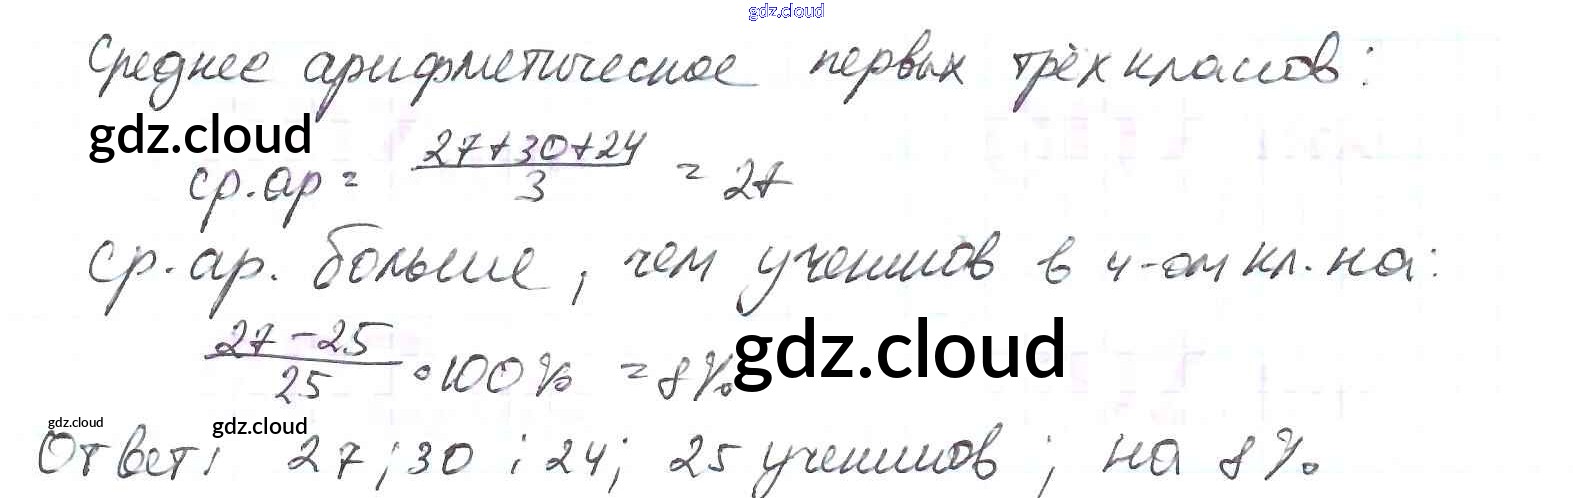 gdz.cloud
Среднее арифметическое первых трёх классов:
gdz.cloud
ср.ар = 27+30+24
3
= 27
ср.ар. больше, чем учеников в 4-ом кл. на:
27-25
25
•100% = 8%
gdz.cloud
gdz.cloud
gdz.cloud
Ответ: 27; 30; 24; 25 учеников; на 8%